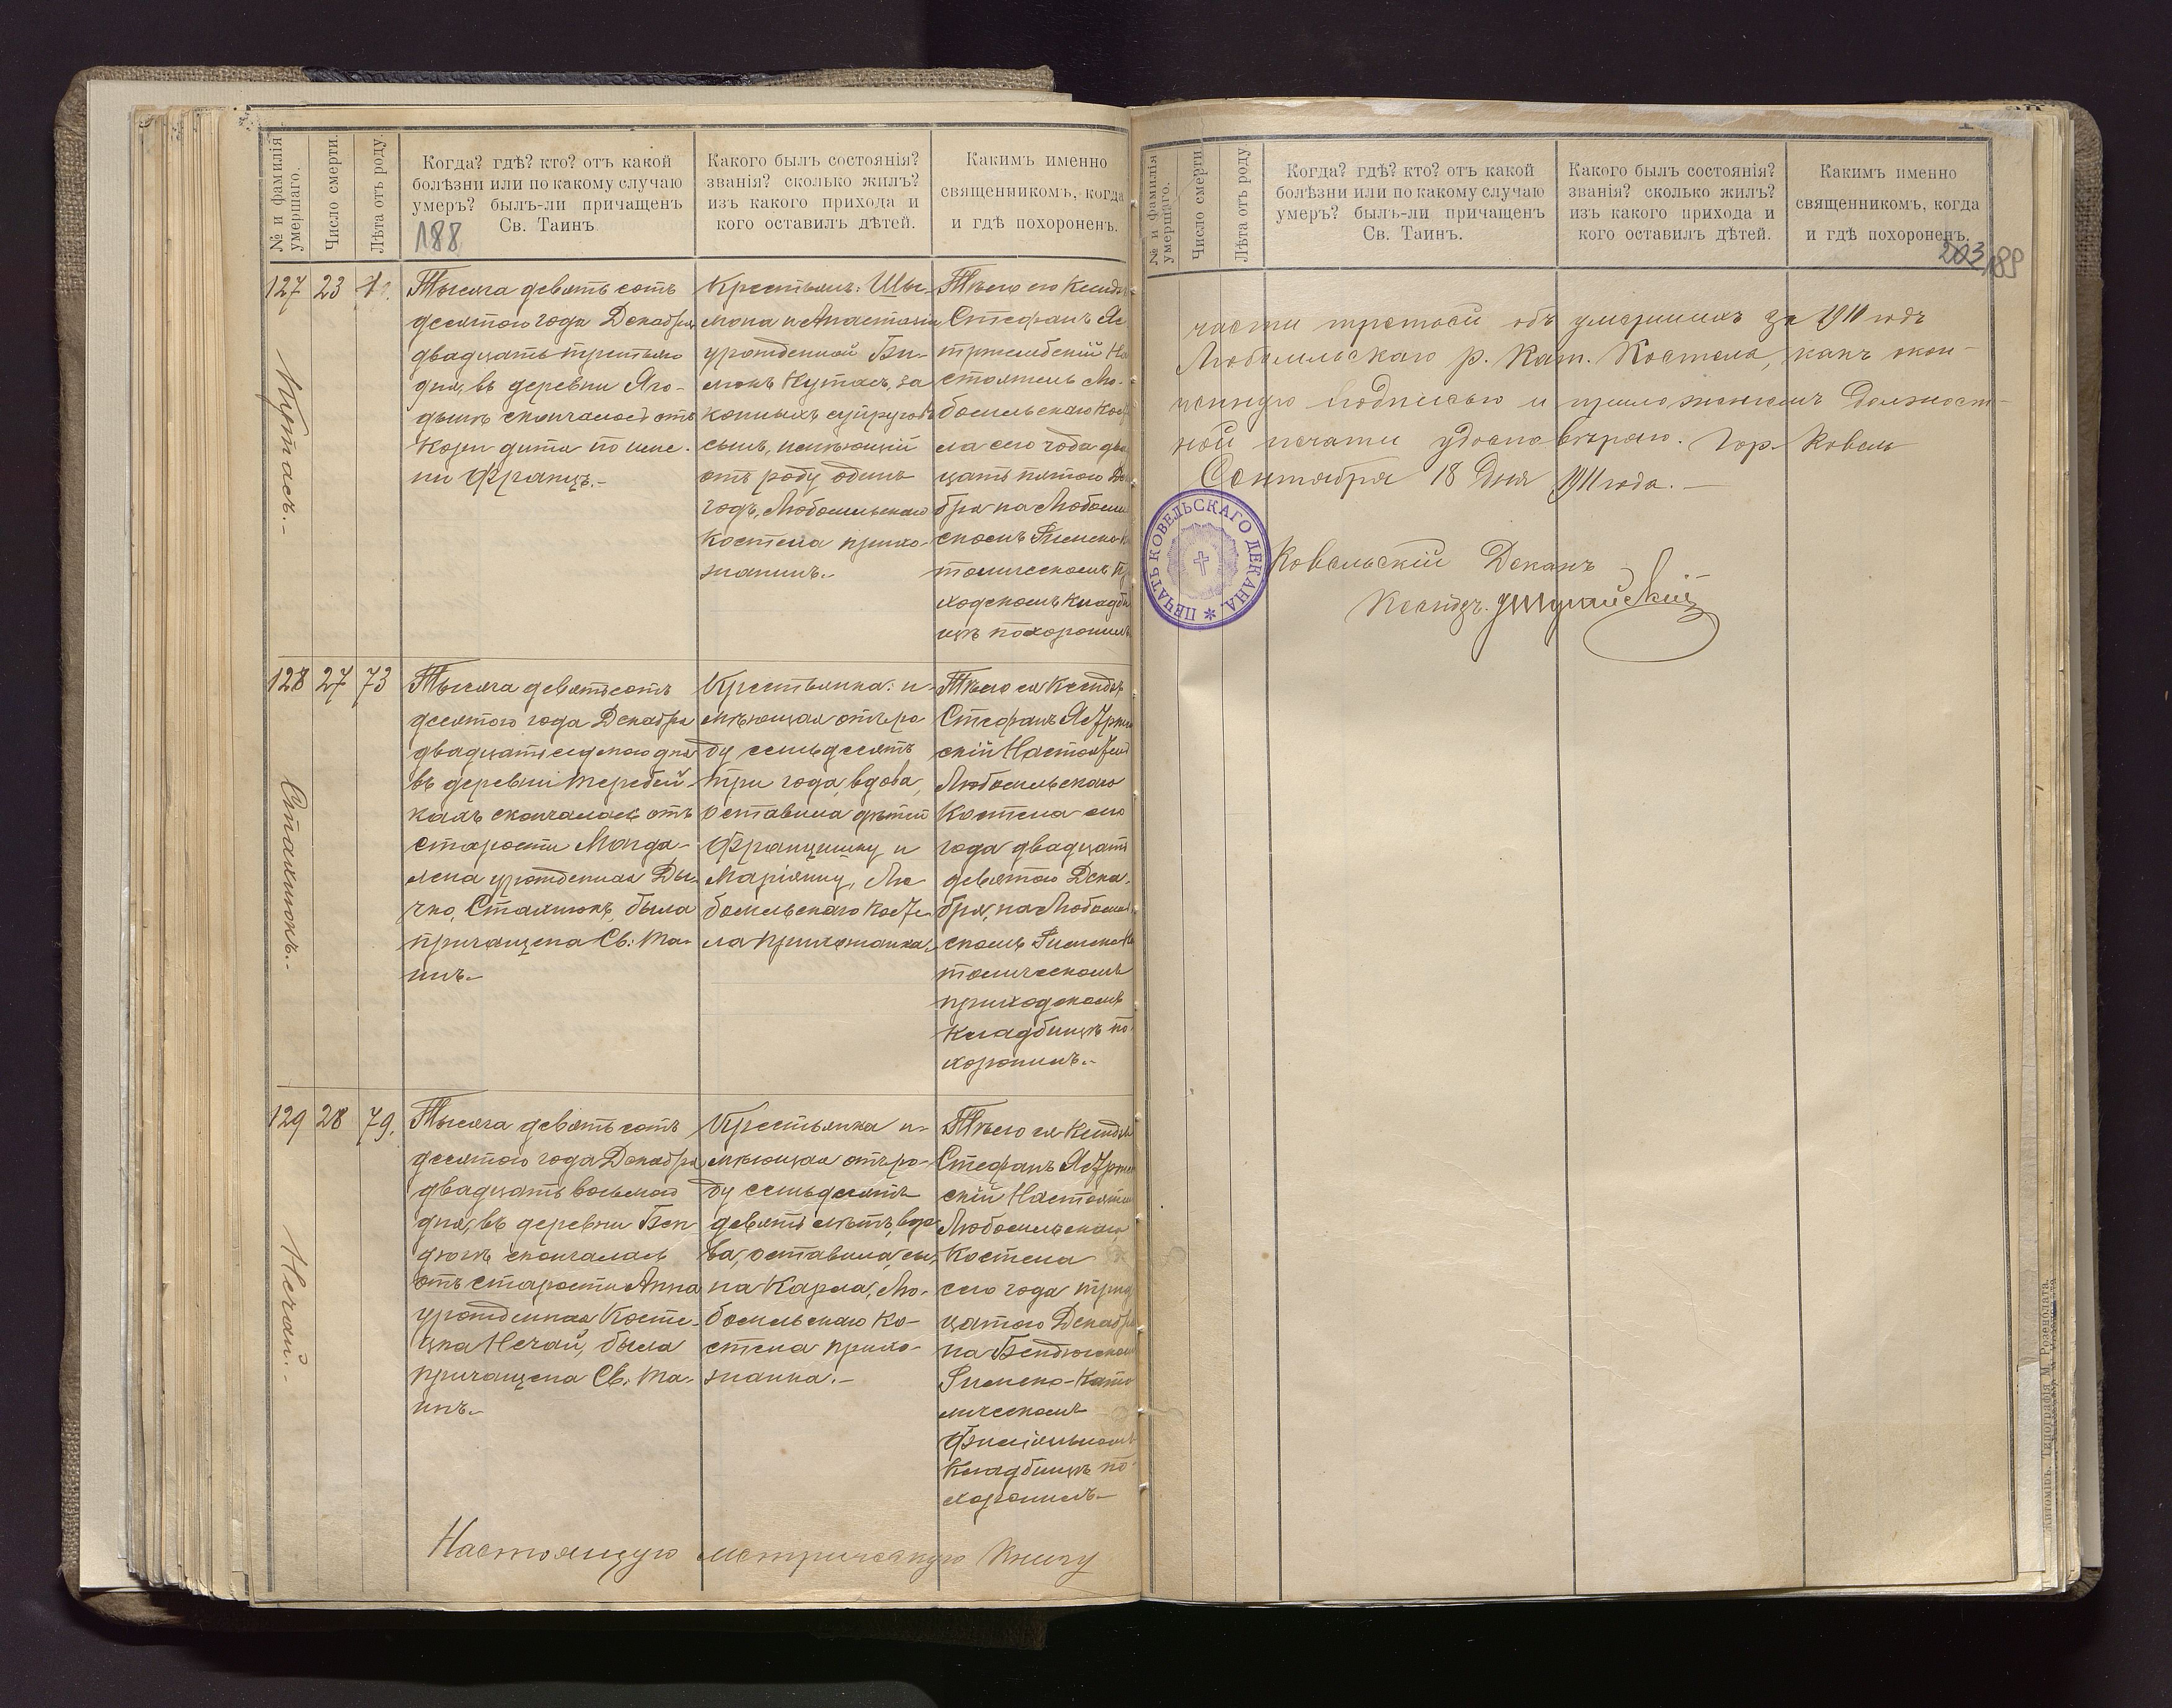 № и фамилія умершаго.
Число смерти.
Лѣта отъ роду
Когда? гдѣ? кто? отъ какой
болѣзни или по какому случаю
умеръ? былъ-ли причащенъ
Св. Таинъ.
188
Какого былъ состоянія?
званія? сколько жилъ?
изъ какого прихода и
кого оставилъ дѣтей.
Какимъ именно
священникомъ, когда
и гдѣ похороненъ.
127
23
1.
Кутасъ.-
Тысяча девятьсотъ
десятого года Декабря
двадцать третьяго
дня, въ деревни Яго-
дынѣ скончалось отъ
кори дитя по име-
ни Францъ.-
Крестьянъ: Шы-
мона и Анастасіи
урожденной Би-
мокъ Кутасъ, за
конныхъ супруговъ
сынъ, имѣющій
отъ роду одинъ
годъ, Любомльскаго
костела прихо-
жанинъ.-
Тѣло его Ксендзъ
Стефанъ Яс
тржембскій На
стоятель Лю-
бомльскаго Кос
ла сего года два
цать пятого Де
бря на Любомл
скомъ Римско-К
толическомъ Пр
ходскомъ кладби
щѣ похоронилъ
128
27
73
Сталнюкъ.-
Тысяча девятьсотъ
десятого года Декабря
двадцать седьмого дня
въ деревни Теребей-
кахъ скончалась отъ
старости Магда-
лена урожденная Ды-
чко, Сталнюкъ, была
причащена Св: Та-
инъ.-
Крестьянка: и-
мѣющая отъ ро
ду семьдесятъ
три года, вдова,
оставила дѣтей
Францишку и
Маріянну, Лю
бомльскаго Косте-
ла прихожанка.-
Тѣло ея Ксендзъ
Стефанъ Ястрже
скій Настоятел
Любомльскаго
Костела сего
года двадцать
девятого Дека-
бря, на Любомл
скомъ Римско-К
толическомъ
приходскомъ
Кладбищѣ по-
хоронилъ.-
129
28
79.
Нечай.-
Тысяча девятьсотъ
десятого года Декабря
двадцать восьмого
дня, въ деревни Бен
дюгѣ скончалась
отъ старости Анна
урожденная Косте-
цка Нечай, была
причащена Св: Та-
инъ.-
Крестьянка и-
мѣющая отъ ро-
ду семьдесятъ
девять лѣтъ, вдо-
ва, оставила сы-
на Карла, Лю-
бомльскаго Ко-
стела прихо-
жанка.-
Тѣло ея Ксендзъ
Стефанъ Ястрже
скій Настоятел
Любомльскаго
Костела
сего года трид
цатого Декабря
на Бендюгском
Римско-Като
лическомъ
Филіяльномъ
Кладбищѣ по-
хоронилъ.-
Настоящую метрическую Книгу
№ и фамилія умершаго.
Число смерти.
Лѣта отъ роду
Когда? гдѣ? кто? отъ какой
болѣзни или по какому случаю
умеръ? былъ-ли причащенъ
Св. Таинъ.
Какого былъ состоянія?
званія? сколько жилъ?
изъ какого прихода и
кого оставилъ дѣтей.
Какимъ именно
священникомъ, когда
и гдѣ похороненъ.
203 189
части третьей объ умершихъ за 1910 годъ
Любомльскаго р. Кат. Костела, какъ окон-
ченную подписью и приложеніемъ должност-
ной печати удостовѣряю. Гор. Ковель
Сентября 18 дня 1911 года.-
ПЕЧАТЬ КОВЕЛЬСКАГО ДЕКАНА.
Ковельскій Деканъ
Ксендзъ
Житомиръ. Типографія М. Розенблата.